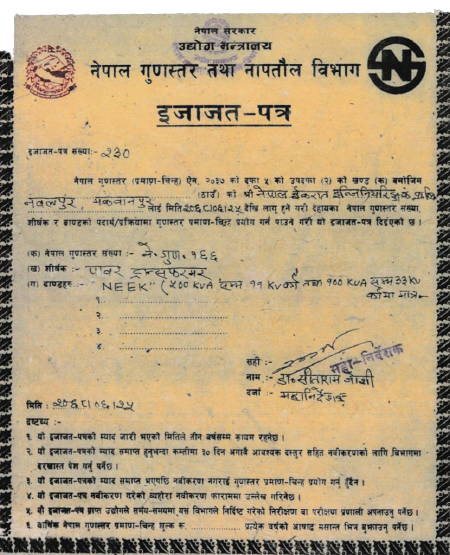 नेपाल सरकार
उद्योग मन्त्रालय
नेपाल गुणस्तर तथा नापतौल विभाग
इजाजत-पत्र
इजाजत-पत्र संख्याः- २३०
नेपाल गुणस्तर (प्रमाण-चिन्ह) ऐन, २०३७ को दफा ५ को उपदफा (२) को खण्ड (क) बमोजिम
नवलपुर, मकवानपुर (ठाउँ) को श्री नेपाल ईकरात इन्जिनियरिङ्ग कं. प्रा.लि.
लाई मिति २०६८/०६/२५ देखि लागु हुने गरी देहायका नेपाल गुणस्तर संख्या,
शीर्षक र ब्राण्डको पदार्थ/प्रक्रियामा गुणस्तर प्रमाण-चिन्ह प्रयोग गर्न पाउने गरी यो इजाजत-पत्र दिईएको छ ।
(क) नेपाल गुणस्तर संख्या :- ने. गुण. १६६
(ख) शीर्षक :- पावर ट्रान्सफरमर
(ग) ब्राण्डहरु :- "NEEK" (५०० KVA सम्म ११ KV को तथा १०० KVA सम्म 33 KV
को मा मात्र)
१.
२.
३.
४.
सही :-
महा-निर्देशक
नाम :- डा. सीताराम जोशी
दर्जा :- महानिर्देशक
मिति : २०६८/०६/२५
द्रष्टव्य :-
१. यो इजाजत-पत्रको म्याद जारी भएको मितिले तीन वर्षसम्म कायम रहनेछ ।
२. यो इजाजत-पत्रको म्याद समाप्त हुनुभन्दा कम्तीमा ३० दिन अगावै आवश्यक दस्तुर सहित नवीकरणको लागि विभागमा
दरखास्त पेश गर्नु पर्नेछ ।
३. यो इजाजत-पत्रको म्याद समाप्त भएपछि नवीकरण नगराई गुणस्तर प्रमाण-चिन्ह प्रयोग गर्न हुँदैन ।
४. यो इजाजत-पत्र नवीकरण गरेको व्यहोरा नवीकरण फाराममा उल्लेख गरिनेछ ।
५. यो इजाजत-पत्र प्राप्त उद्योगले समय-समयमा यस विभागले निर्दिष्ट गरेको निरीक्षण वा परीक्षण प्रणाली अपनाउनु पर्नेछ ।
६. वार्षिक नेपाल गुणस्तर प्रमाण-चिन्ह शुल्क रू. .................. प्रत्येक वर्षको आषाढ मसान्त भित्र बुझाउनु पर्नेछ ।